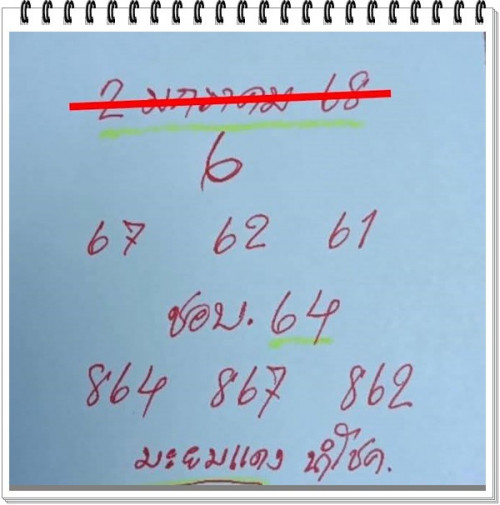 2 มกราคม 68
6
67 62 61
ชอบ. 64
864 867 862
มะยมแดง นำโชค.